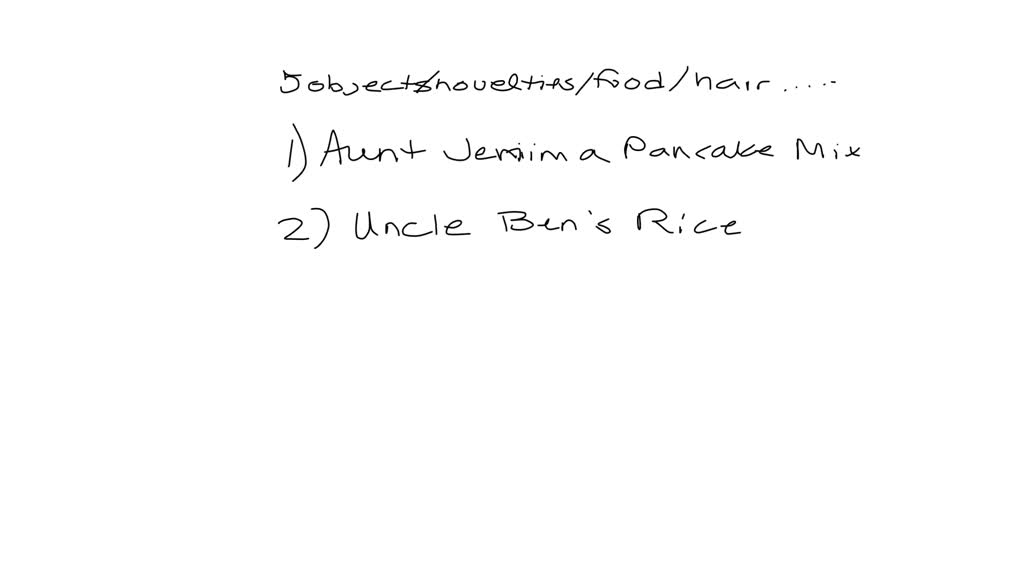 5 objects/novelties/food/hair.....
1) Aunt Jemima Pancake Mix
2) Uncle Ben's Rice